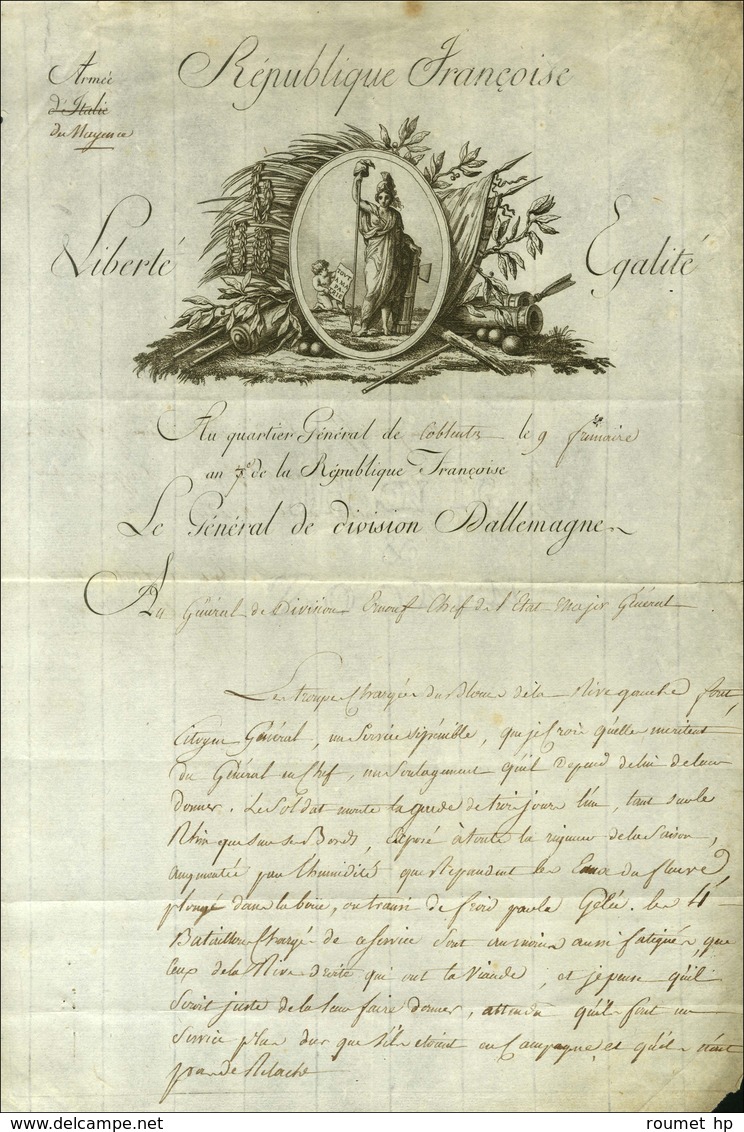 République Françoise
Armée
d'Italie
de Mayence
Liberté
Egalité
TOUT
A MA
PA
TRIE
Au quartier Général de Coblentz le 9 frimaire
an 7e de la République Françoise
Le Général de division Dallemagne
Au Général de Division Ernouf Chef de l'Etat Major Général
Les troupes Chargées du Blocus de la Rive gauche font,
Citoyen Général, un Service si pénible, que je Crois qu'elles meritent
du Général en Chef, un Soulagement qu'il depend de lui de leur
donner. Le Soldat monte la garde de trois jours l'un, tant sur le
Rhin que sur ses Bords, Exposé à toute la rigueur de la Saison,
augmentée par l'humidité que Repandent les Eaux du fleuve,
plongé dans la boue, ou transi de froid par la Gélée. les 4
Bataillons Chargés de ce Service Sont au moins aussi fatigués, que
Ceux de la Rive droite qui ont la Viande, et je pense qu'il
Seroit juste de la leur faire donner, attendu qu'ils font un
Service plus dur que s'ils etoient en Campagne, et qu'ils n'ont
pas de Relache
roumet hp